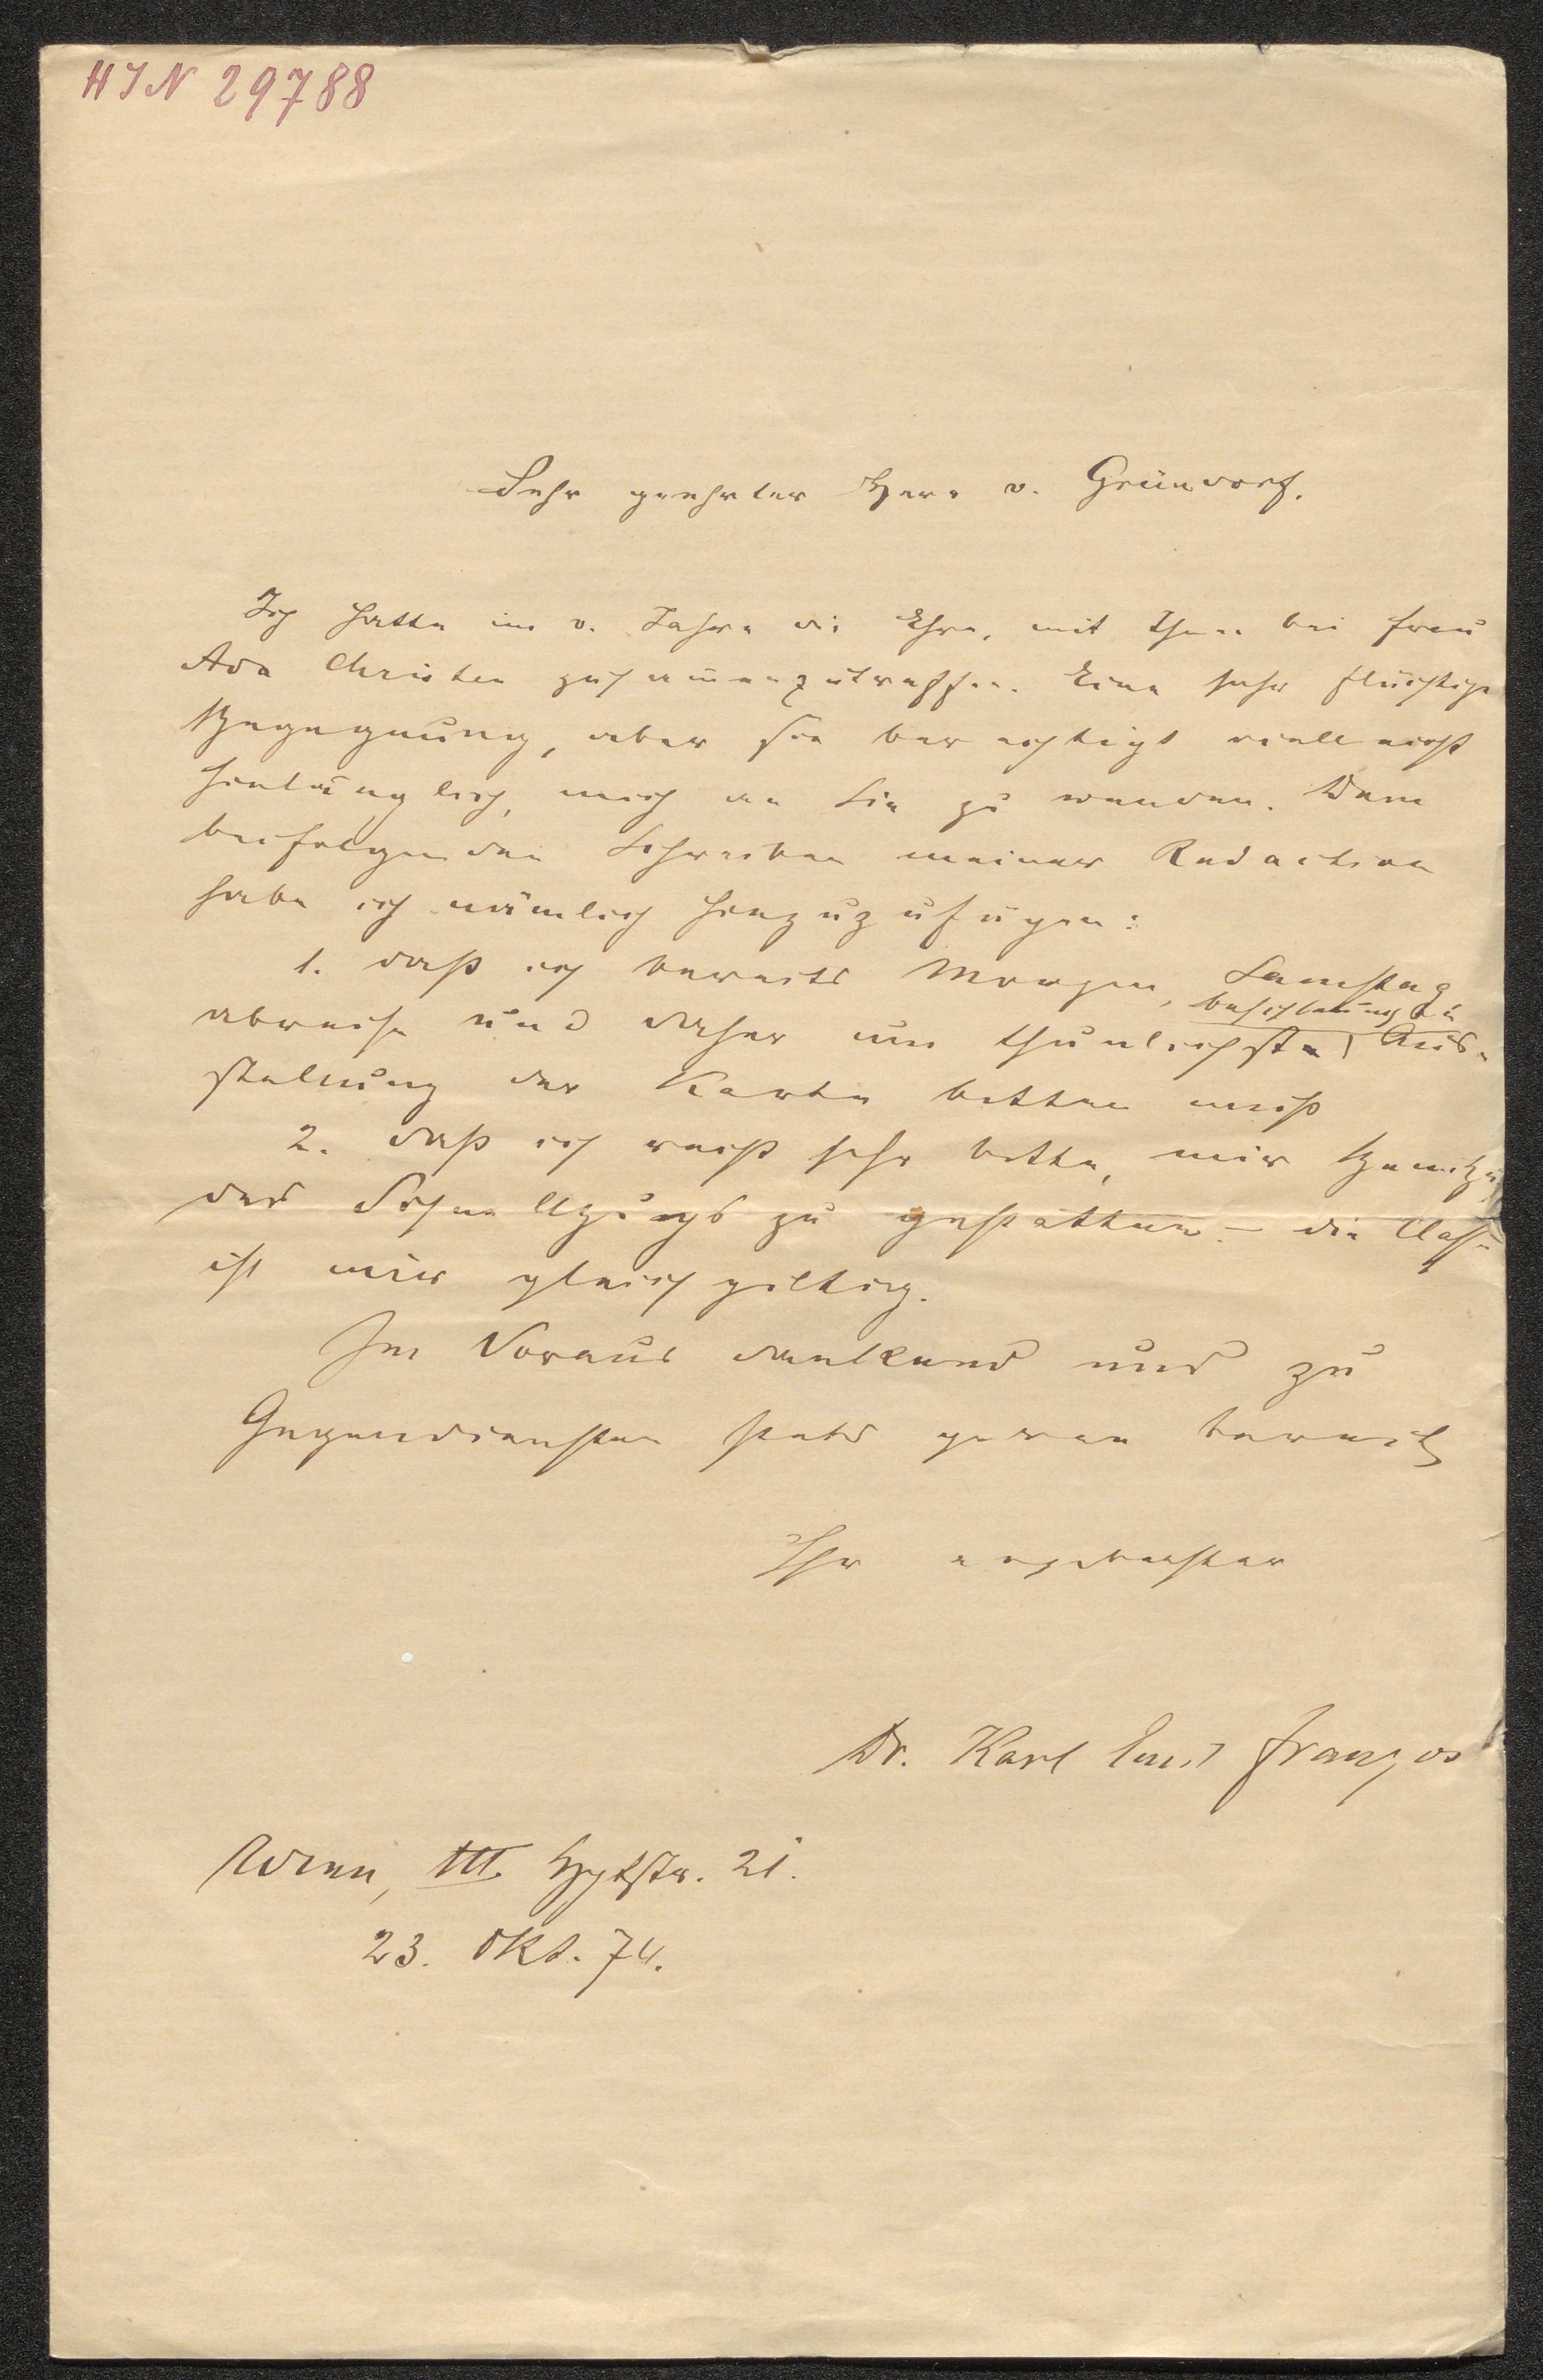 HIN 29788
Sehr geehrter Herr v. Gründorf.
Ich hatte im v. Jahre die Ehre, mit Ihnen bei Frau
Ada Christen zusammenzutreffen. Eine sehr flüchtige
Begegnung, aber sie berechtigt vielleicht
hinlänglich, mich an Sie zu wenden. Dem
beifolgenden Schreiben meiner Redaction
habe ich nämlich hinzuzufügen:
1. daß ich bereits Morgen, Samstag,
beschleunigte
abreise und daher um thunlichst Aus-
stellung der Karte bitten muß
2. daß ich recht sehr bitte, mir Benützg
des Schnellzugs zu gestatten – die Classe
ist mir gleichgiltig.
Im Voraus dankend und zu
Gegendiensten stets gerne bereit
Ihr ergebenster
Dr. Karl Emil Franzos
Wien, III. Hptstr. 21.
23. Okt. 74.